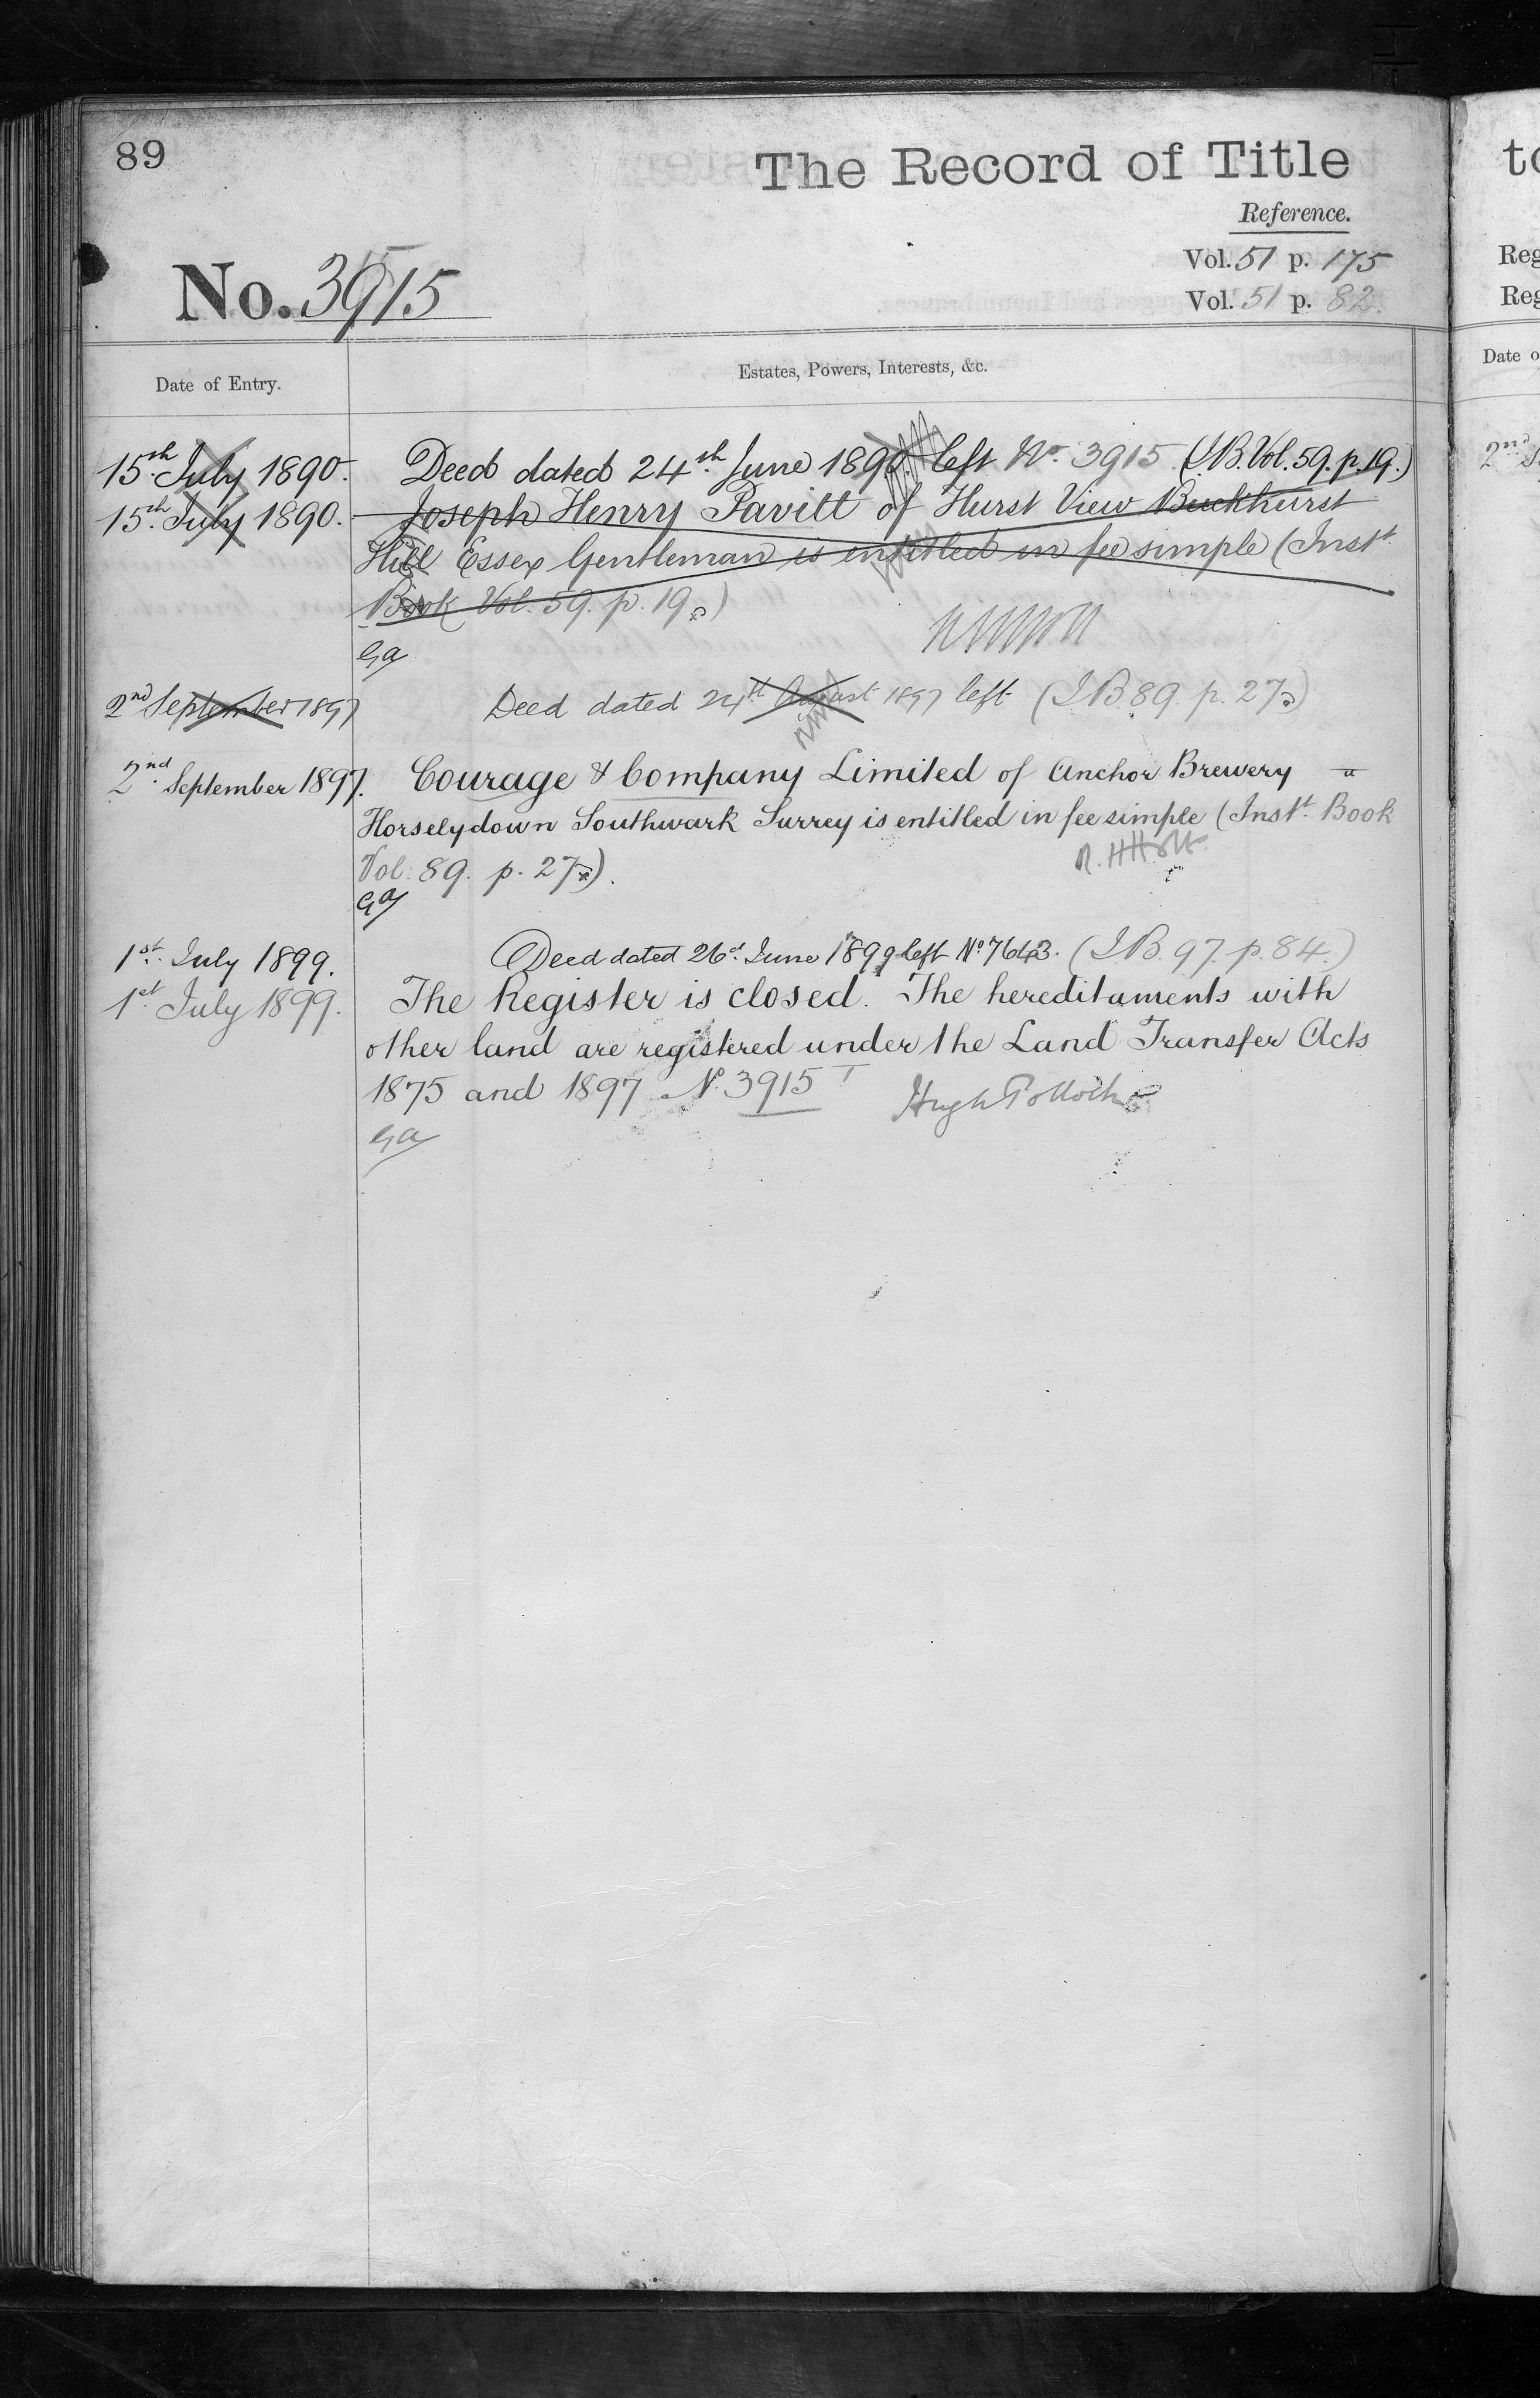 89
The Record of Title
Reference.
Vol. 51 p. 175
No. 3915
Vol. 51 p. 82.
Date of Entry.
Estates, Powers, Interests, &c.
15.th July 1890. Deed dated 24.th June 1890. left No. 3915 (I.B. Vol. 59. p. 19.)
15.th July 1890. Joseph Henry Pavitt of Hurst View Buckhurst
Hill Essex Gentleman is entitled in fee simple (Inst.t
Book Vol. 59. p. 19.)
Ga
2nd September 1897 Deed dated 24th August 1897 left (I.B. 89. p. 27.)
2.nd September 1897. Courage & Company Limited of Anchor Brewery
Horselydown Southwark Surrey is entitled in fee simple (Inst.t Book
Vol: 89. p. 27).
Ga
1st. July 1899. Deed dated 26th June 1899 left No. 7643. (I.B. 97. p. 84.)
1st July 1899. The Register is closed. The hereditaments with
other land are registered under the Land Transfer Acts
1875 and 1897 No. 3915 T Hugh Pollock
Ga
to
Reg
Reg
Date o
2nd S